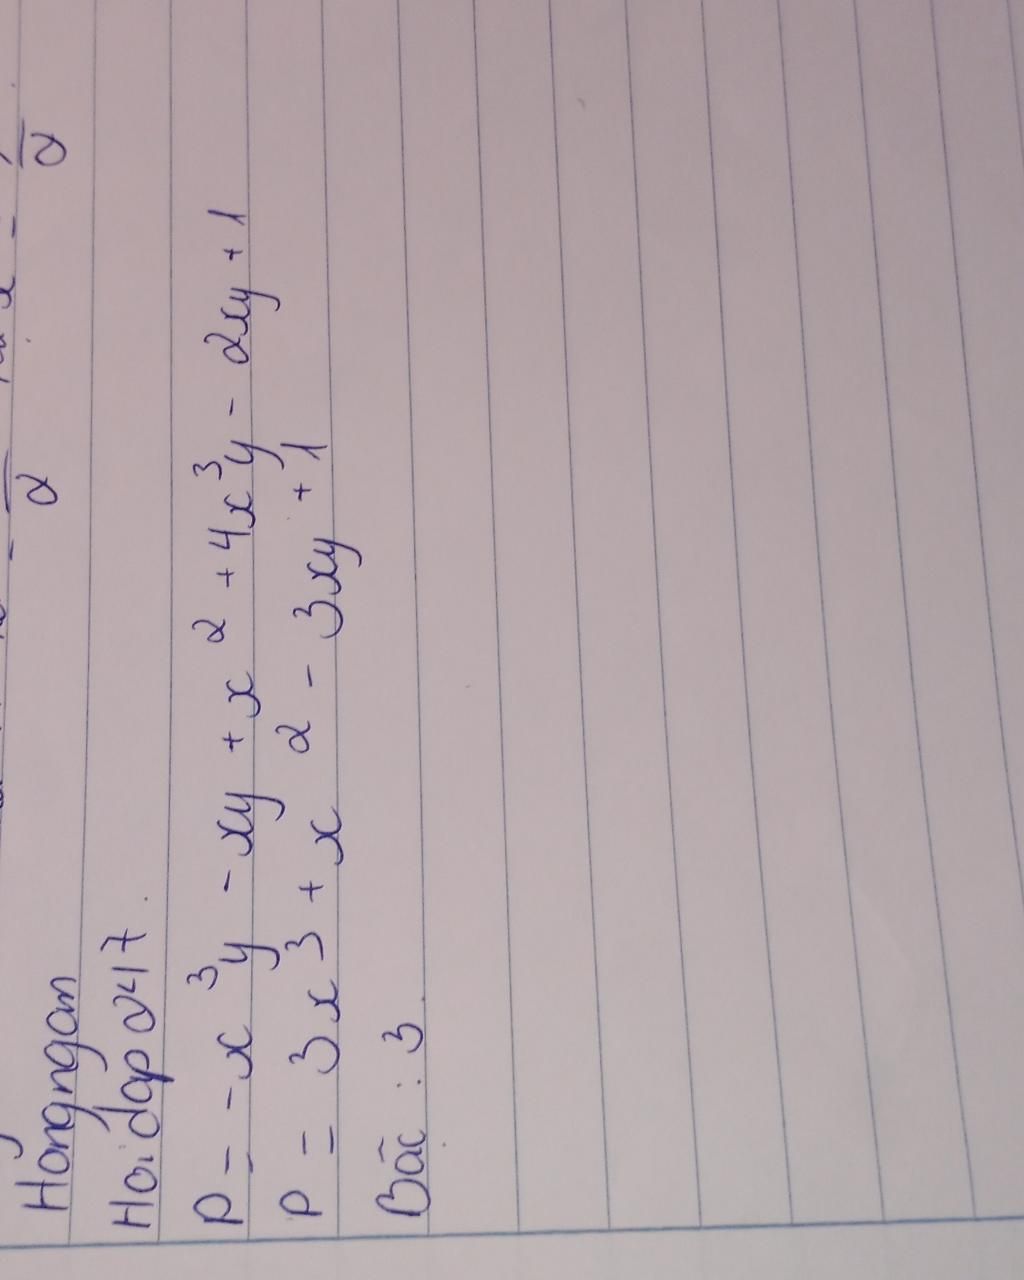 Hongngan
Hoidap247.
P = -x³y - xy + x² + 4x³y - 2xy + 1
P = 3x³ + x² - 3xy + 1
Bậc : 3